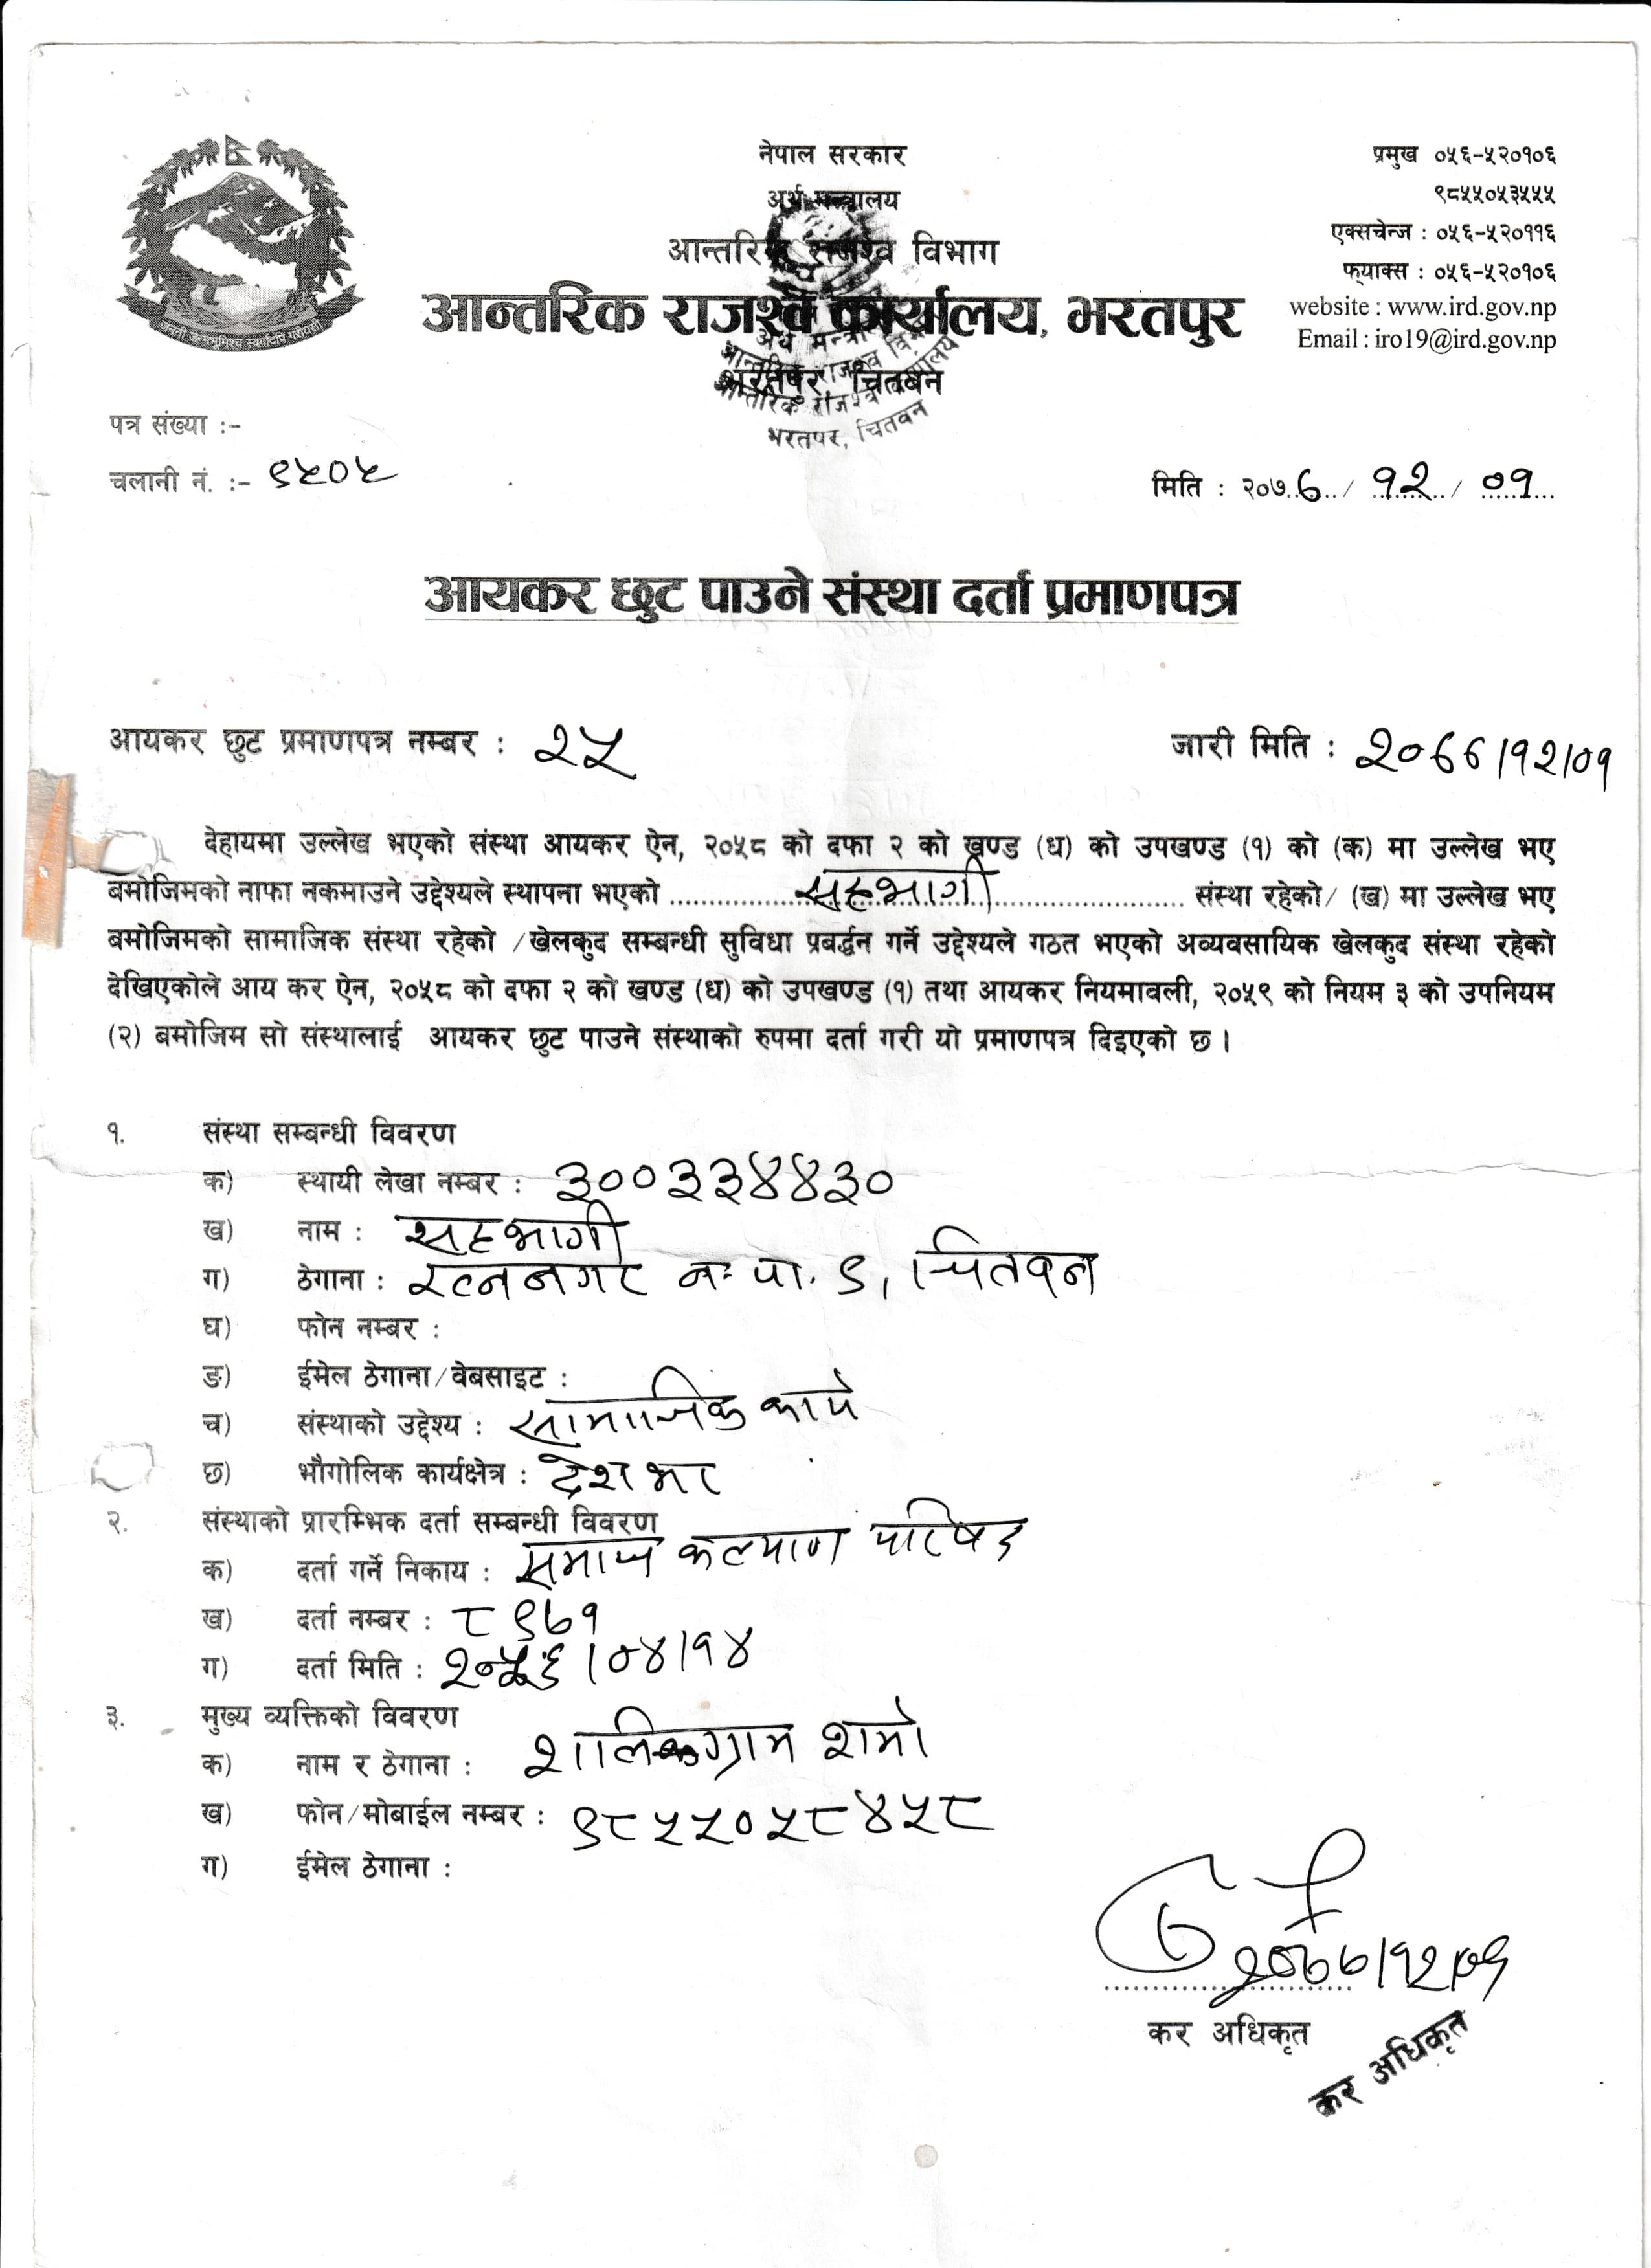 नेपाल सरकार
अर्थ मन्त्रालय
आन्तरिक राजश्व विभाग
आन्तरिक राजश्व कार्यालय, भरतपुर
भरतपुर, चितवन
प्रमुख ०५६-५२०१०६
९८५५०५३५५५
एक्सचेन्ज : ०५६-५२०११६
फ्याक्स : ०५६-५२०१०६
website : www.ird.gov.np
Email : iro19@ird.gov.np
जननी जन्मभूमिश्च स्वर्गादपि गरीयसी
अर्थ मन्त्रा
आन्तरिक राजश्व विभाग
आन्तरिक राजश्व कार्यालय
भरतपुर, चितवन
पत्र संख्या :-
चलानी नं. :- ९५०५
मिति : २०७६ / १२ / ०१
आयकर छुट पाउने संस्था दर्ता प्रमाणपत्र
आयकर छुट प्रमाणपत्र नम्बर : २५
जारी मिति : २०७७/१२/०१
देहायमा उल्लेख भएको संस्था आयकर ऐन, २०५८ को दफा २ को खण्ड (ध) को उपखण्ड (१) को (क) मा उल्लेख भए
बमोजिमको नाफा नकमाउने उद्देश्यले स्थापना भएको सहभागी संस्था रहेको/ (ख) मा उल्लेख भए
बमोजिमको सामाजिक संस्था रहेको /खेलकुद सम्बन्धी सुविधा प्रबर्द्धन गर्ने उद्देश्यले गठत भएको अव्यवसायिक खेलकुद संस्था रहेको
देखिएकोले आय कर ऐन, २०५८ को दफा २ को खण्ड (ध) को उपखण्ड (१) तथा आयकर नियमावली, २०५९ को नियम ३ को उपनियम
(२) बमोजिम सो संस्थालाई आयकर छुट पाउने संस्थाको रुपमा दर्ता गरी यो प्रमाणपत्र दिइएको छ ।
१. संस्था सम्बन्धी विवरण
क) स्थायी लेखा नम्बर : ३००३३४४३०
ख) नाम : सहभागी
ग) ठेगाना : रत्ननगर न. पा. ९, चितवन
घ) फोन नम्बर :
ङ) ईमेल ठेगाना/वेबसाइट :
च) संस्थाको उद्देश्य : सामाजिक कार्य
छ) भौगोलिक कार्यक्षेत्र : देशभर
२. संस्थाको प्रारम्भिक दर्ता सम्बन्धी विवरण
क) दर्ता गर्ने निकाय : समाज कल्याण परिषद
ख) दर्ता नम्बर : ८९७१
ग) दर्ता मिति : २०५६/०४/१४
३. मुख्य व्यक्तिको विवरण
क) नाम र ठेगाना : शालिकग्राम शर्मा
ख) फोन/मोबाईल नम्बर : ९८५५०५८४५८
ग) ईमेल ठेगाना :
२०७७/१२/०१
कर अधिकृत
कर अधिकृत